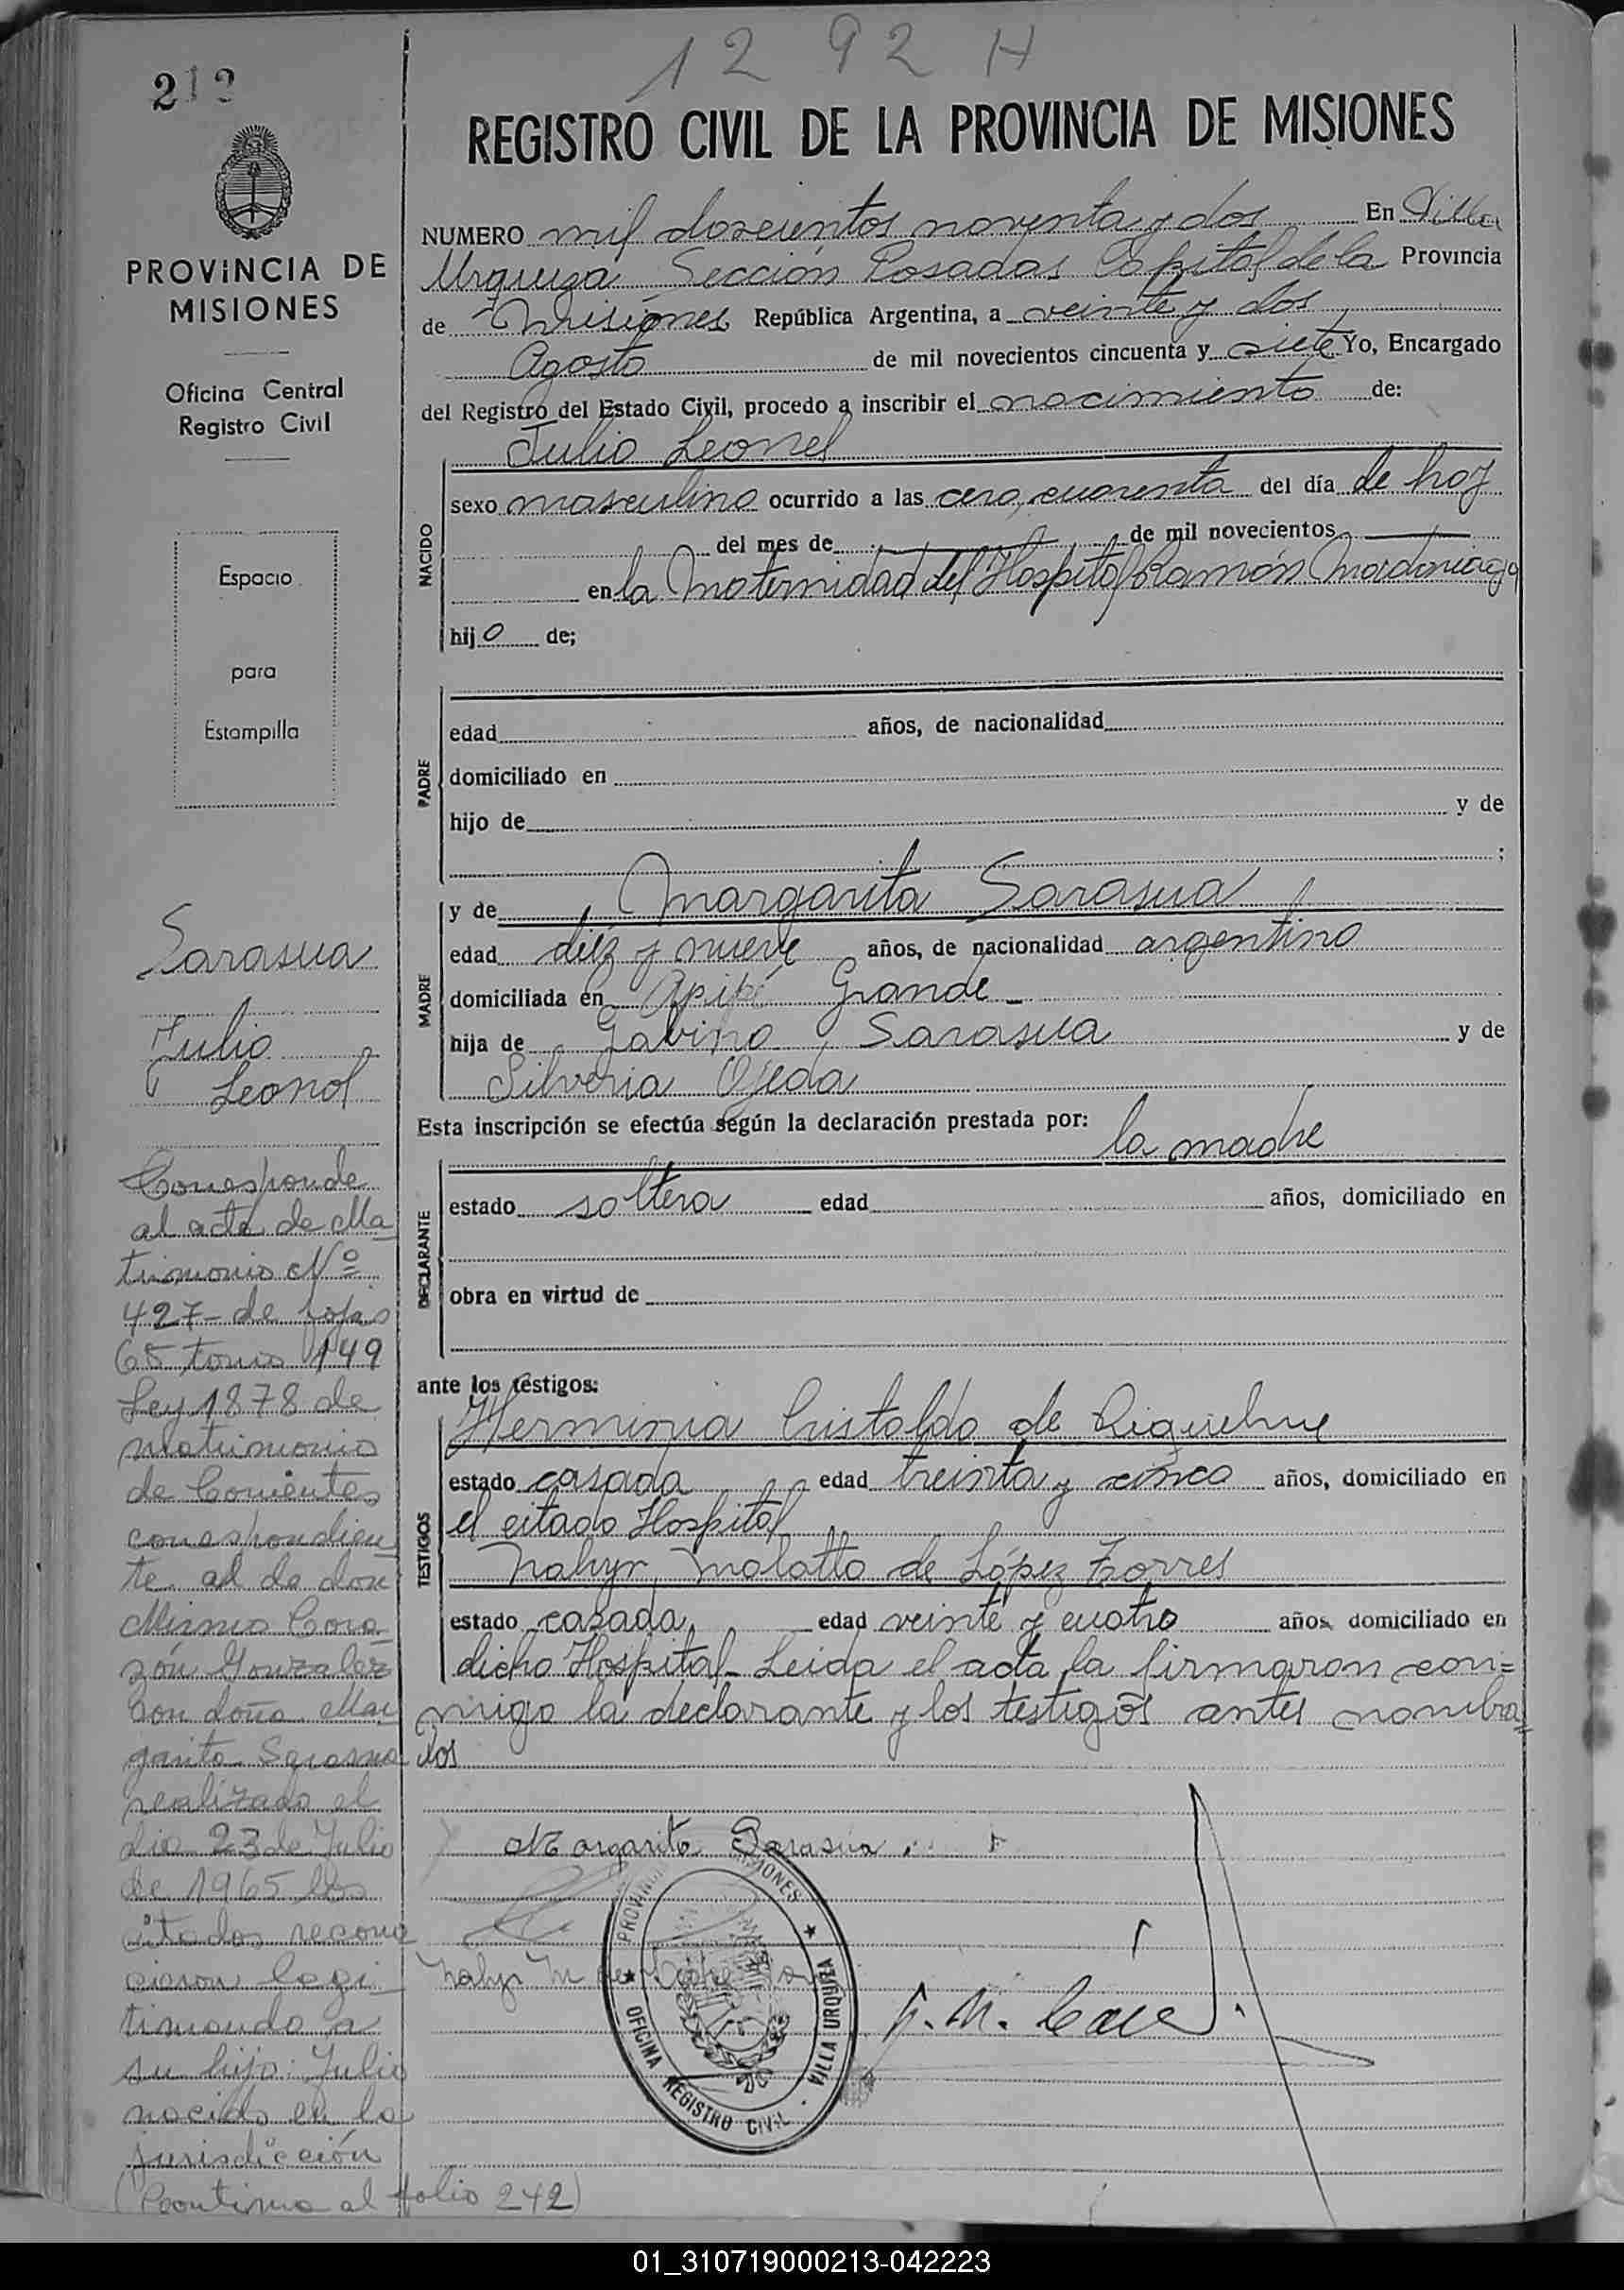 1292 H
212
REGISTRO CIVIL DE LA PROVINCIA DE MISIONES
PROVINCIA DE
MISIONES
Oficina Central
Registro Civil
Espacio
para
Estampilla
NUMERO mil doscientos noventa y dos En Villa
Urquiza Sección Posadas Capital de la Provincia
de Misiones República Argentina, a veinte y dos
Agosto de mil novecientos cincuenta y siete Yo, Encargado
del Registro del Estado Civil, procedo a inscribir el nacimiento de:
NACIDO
Julio Leonel
sexo masculino ocurrido a las cero, cuarenta del día de hoy
del mes de de mil novecientos
en la Maternidad del Hospital Ramón Madariaga
hijo de;
PADRE
edad años, de nacionalidad
domiciliado en
hijo de y de
;
MADRE
y de Margarita Sarasua
edad diez y nueve años, de nacionalidad argentino
domiciliada en Apipé Grande
hija de Gabino Sarasua y de
Silveria Ojeda
Esta inscripción se efectúa según la declaración prestada por:
la madre
DECLARANTE
estado soltera edad años, domiciliado en
obra en virtud de
ante los testigos:
TESTIGOS
Herminia Cristaldo de Riquelme
estado casada edad treinta y cinco años, domiciliado en
el citado Hospital
Nahyr Malatto de López Torres
estado casada edad veinte y cuatro años domiciliado en
dicho Hospital- Leida el acta la firmaron con=
migo la declarante y los testigos antes nombra=
dos
Margarita Sarasua
Nahyr M de
PROVINCIA MISIONES
OFICINA REGISTRO CIVIL
VILLA URQUIZA
Sarasua
Julio
Leonel
Corresponde
al acta de Ma
trimonio Nº
427- de fojas
65 tomo 149
Ley 1878 de
matrimonio
de Corrientes
correspondien
te al de don
Mismo Cora-
zón Gonzalez
con doña Mar
garita Sarasua
realizado el
dia 23 de Julio
de 1965 los
citados recono
cieron legi
timando a
su hijo: Julio
nacido en la
jurisdicción
(Continua al folio 242)
01_310719000213-042223